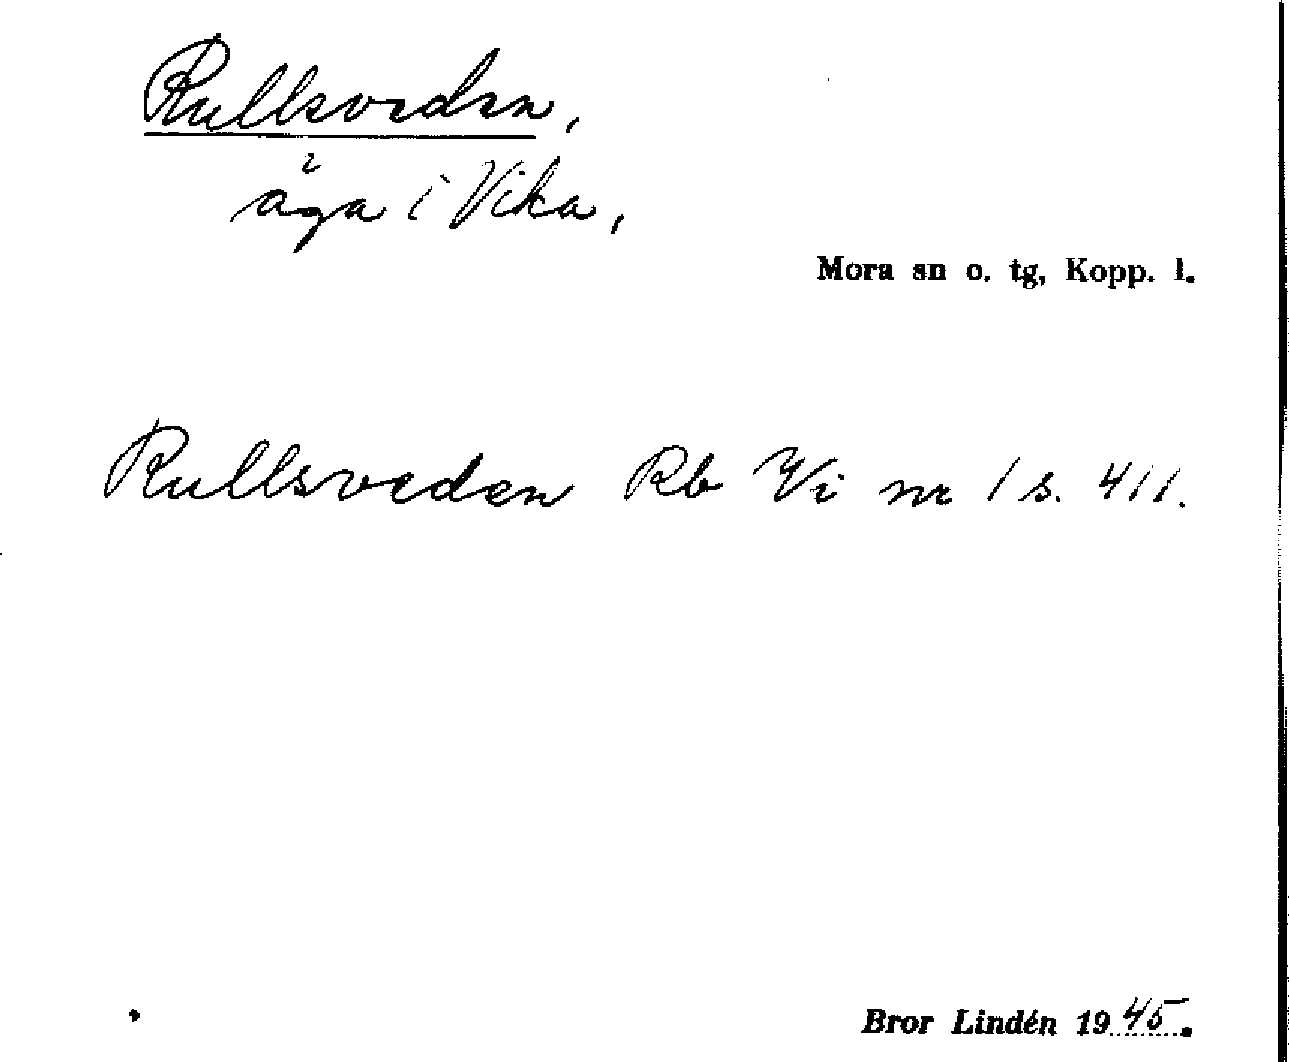 Rullsveden,
äga i Vika,
Mora sn o. tg, Kopp. l.
Rullsveden Rb Vi nr 1 s. 411.
Bror Lindén 1945.